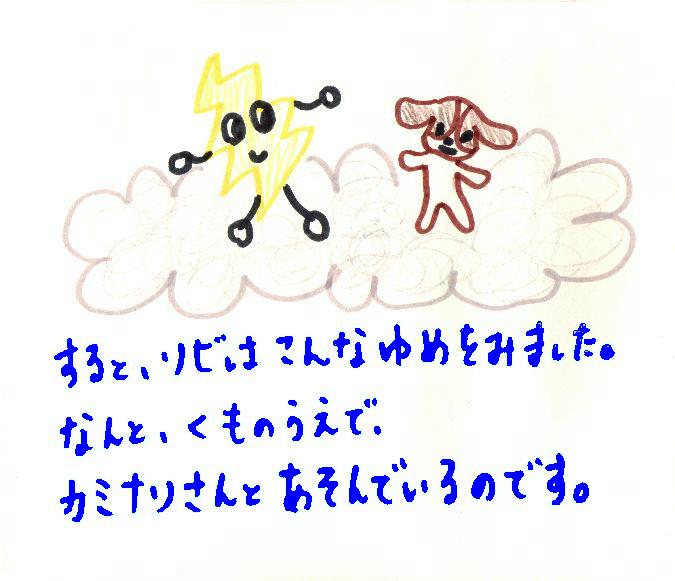 すると、リビはこんなゆめをみました。
なんと、くものうえで、
カミナリさんとあそんでいるのです。